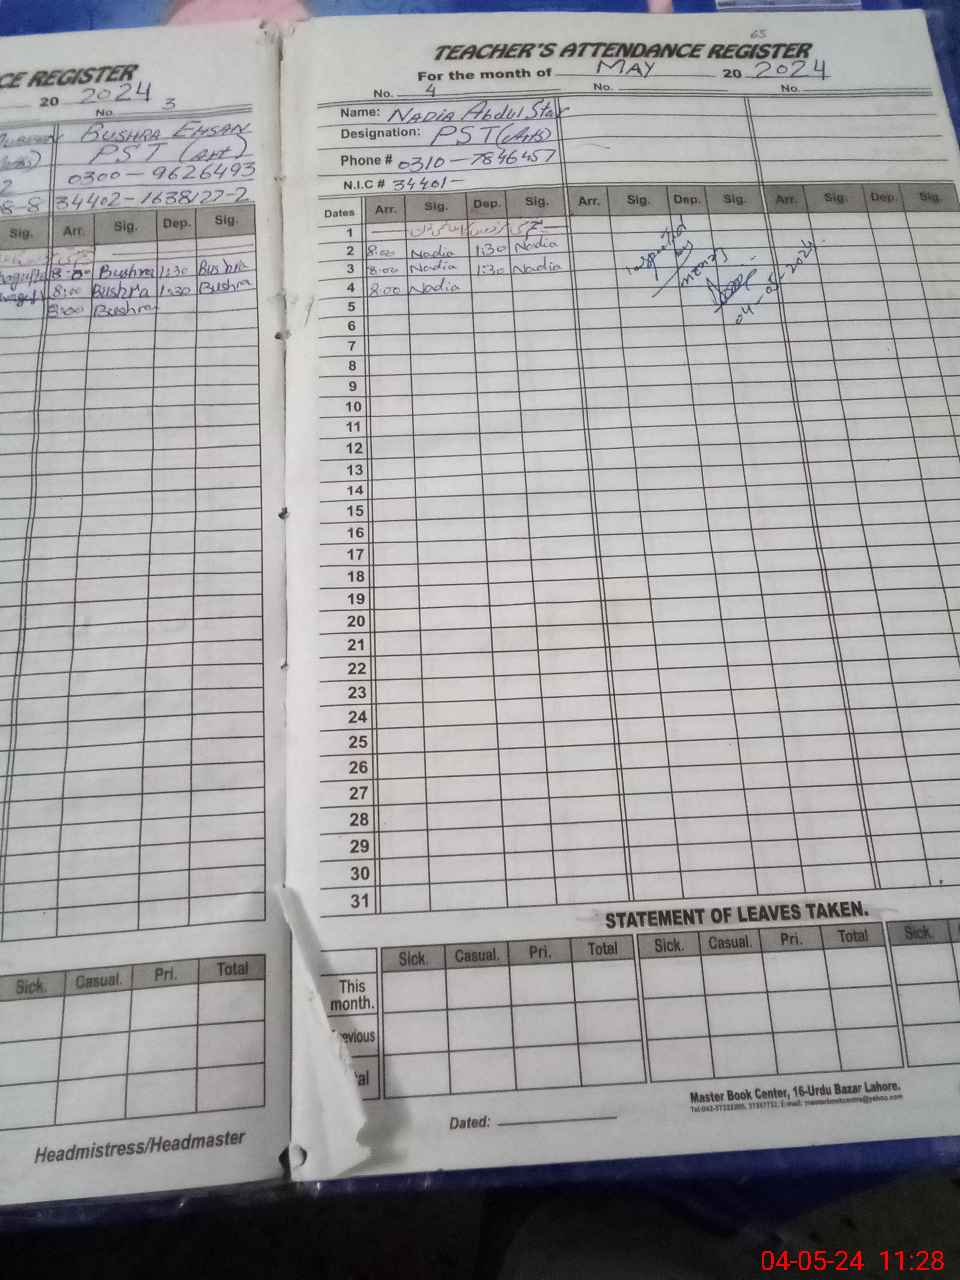 CE REGISTER
20 2024
No. 3
BUSHRA EHSAN
PST (Art)
2 0300-9626493
8-8 34402-1638127-2
Sig. Arr. Sig. Dep. Sig.
Bushra 1:30 Bushra
8:00 Bushra 1:30 Bushra
8:00 Bushra
Sick. Casual. Pri. Total
Headmistress/Headmaster
65
TEACHER'S ATTENDANCE REGISTER
For the month of MAY 20 2024
No. 4 No. No.
Name: NADIA Abdul
Designation: PST (Arts)
Phone # 0310-7846457
N.I.C # 34401-
Dates Arr. Sig. Dep. Sig. Arr. Sig. Dep. Sig. Arr. Sig. Dep. Sig.
1
2 8:00 Nadia 1:30 Nadia
3 8:00 Nadia 1:30 Nadia
4 8:00 Nadia
5
6
7
8
9
10
11
12
13
14
15
16
17
18
19
20
21
22
23
24
25
26
27
28
29
30
31
Inspected
by
04-05-2024
STATEMENT OF LEAVES TAKEN.
Sick. Casual. Pri. Total Sick. Casual. Pri. Total Sick.
This
month.
evious
tal
Master Book Center, 16-Urdu Bazar Lahore.
Dated:
04-05-24 11:28